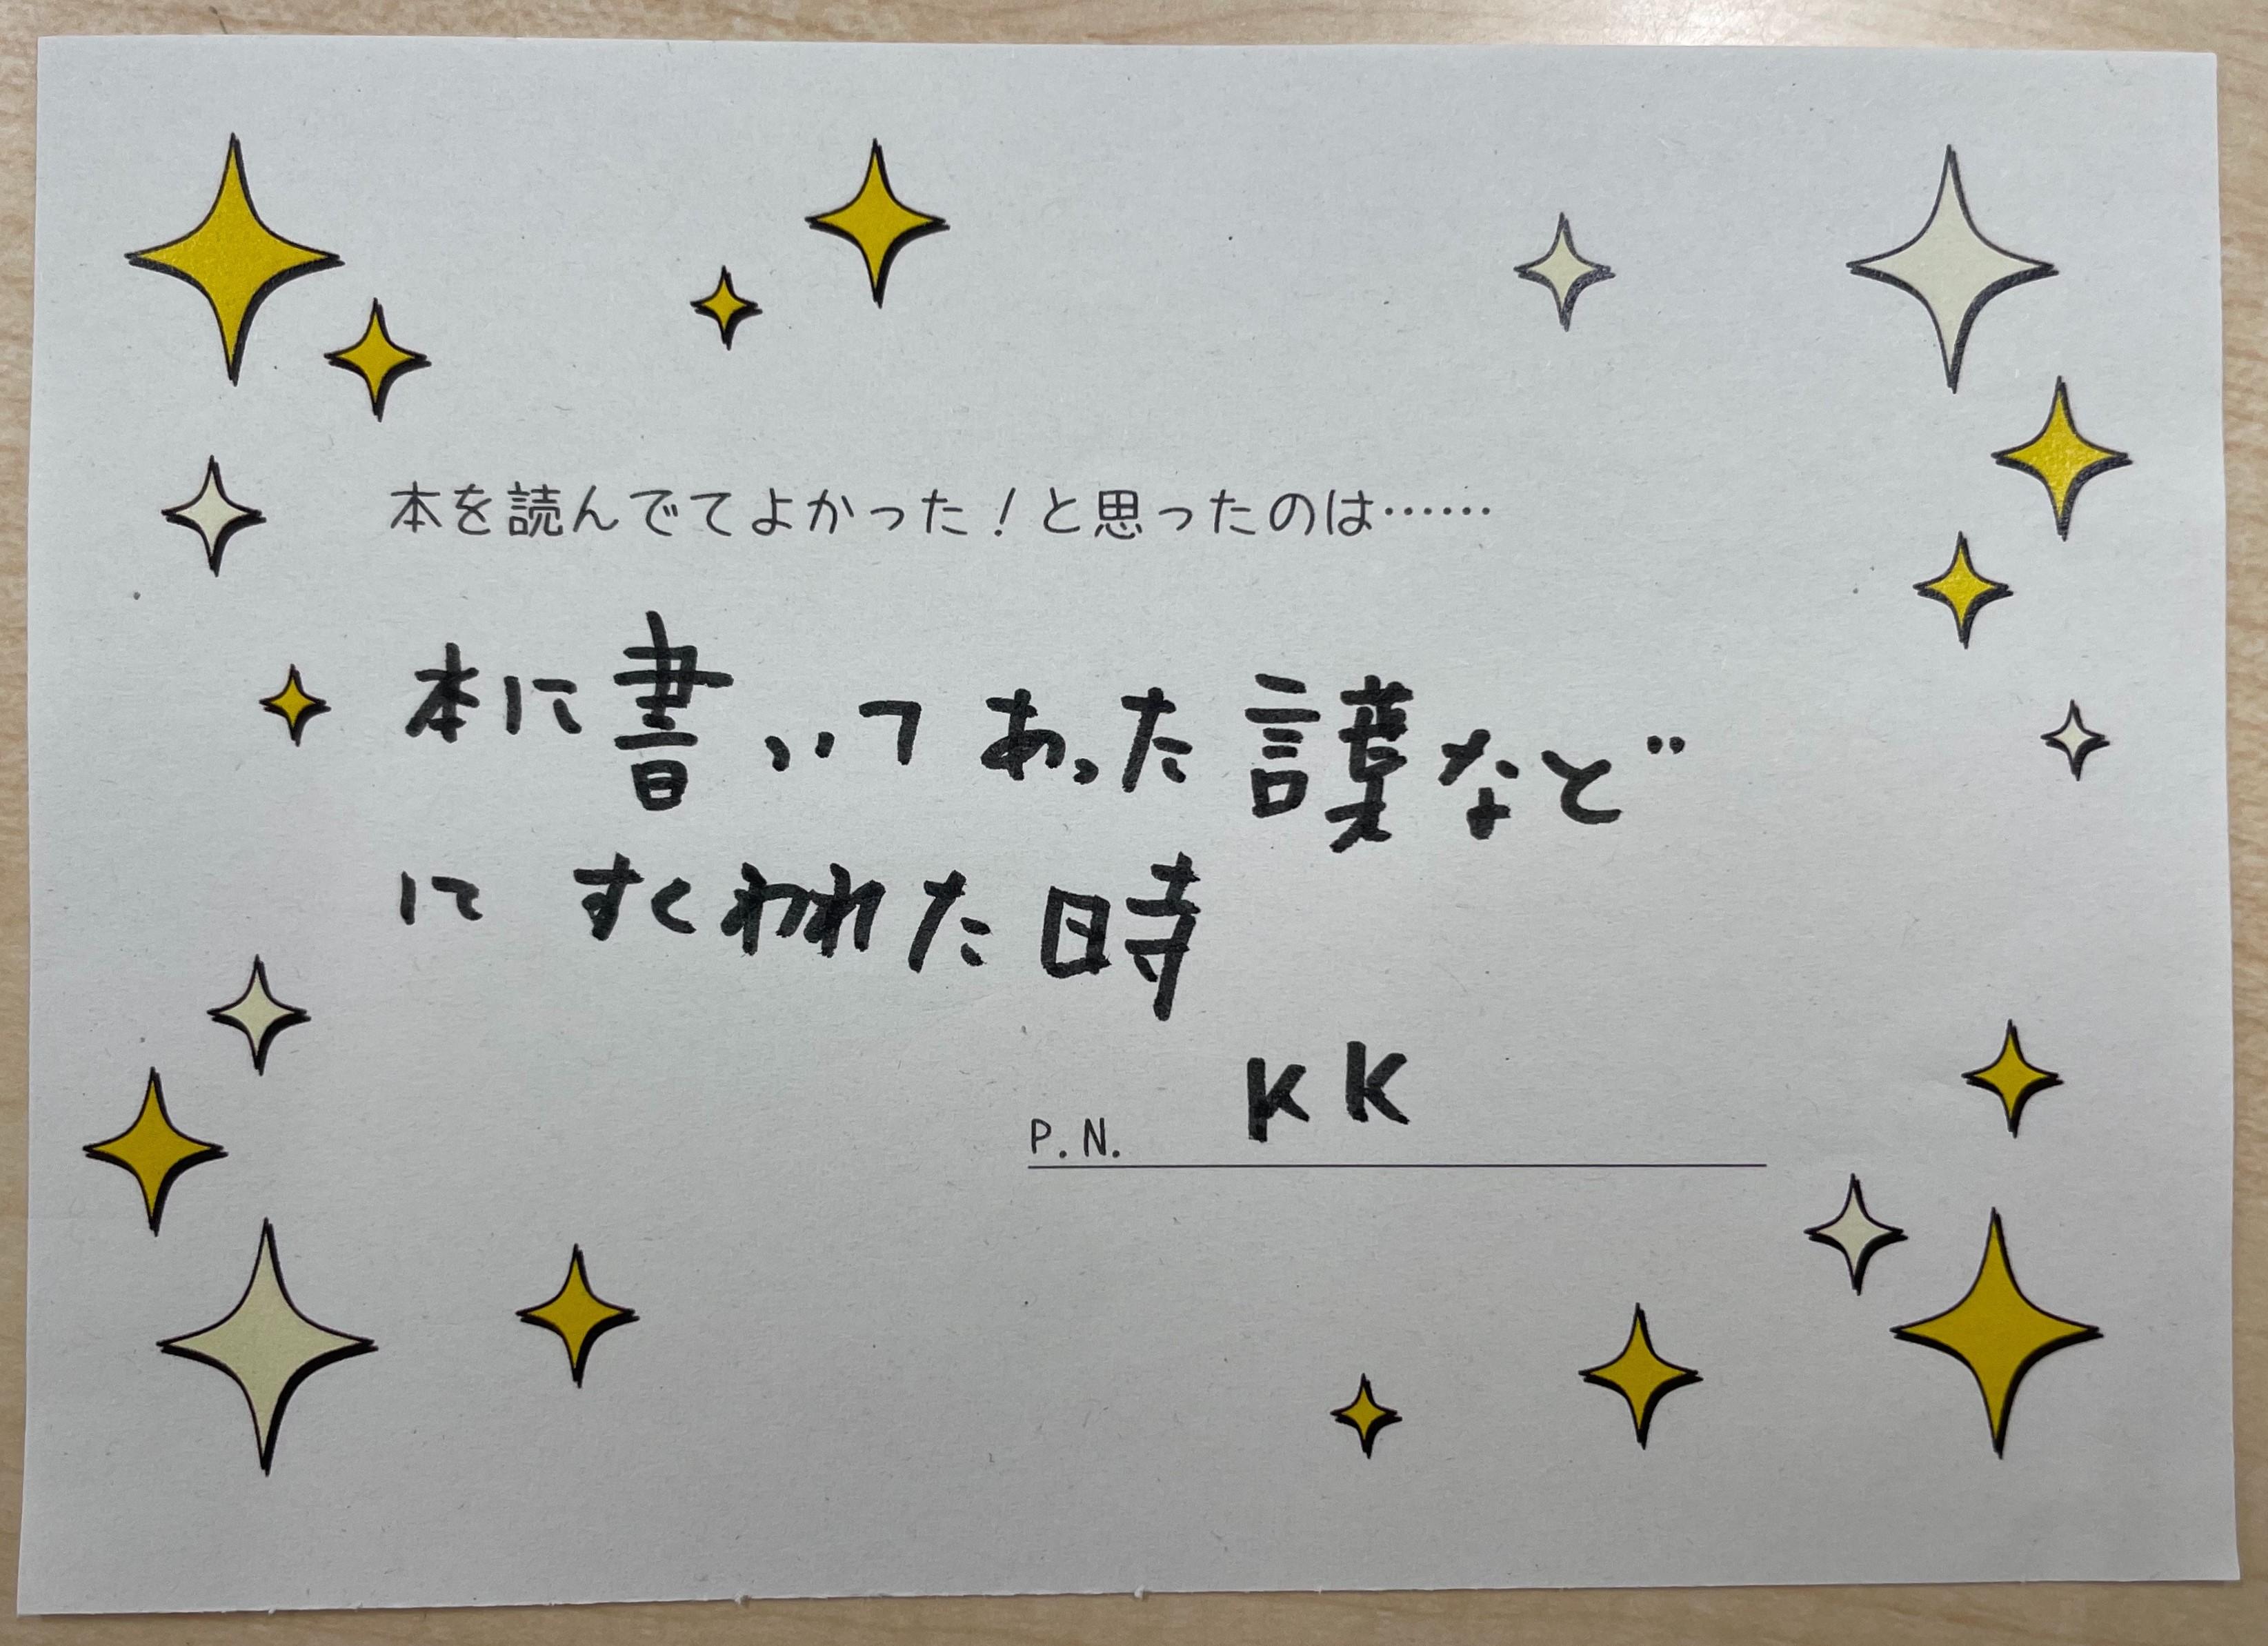 本を読んでてよかった！と思ったのは……
本に書いてあった言葉など
にすくわれた時
KK
P.N.